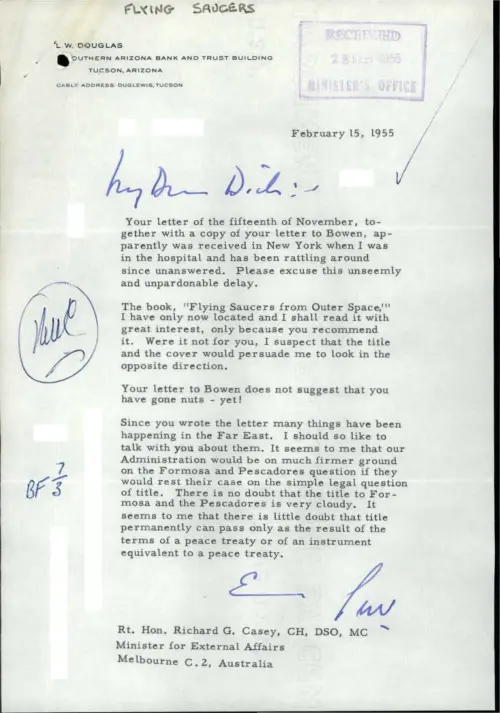 FLYING SAUCERS
L. W. DOUGLAS
SOUTHERN ARIZONA BANK AND TRUST BUILDING
TUCSON, ARIZONA
CABLE ADDRESS: DUGLEWIS, TUCSON
RECEIVED
1955
MINISTER'S OFFICE
February 15, 1955
My Dear Dick: -
Your letter of the fifteenth of November, to-
gether with a copy of your letter to Bowen, ap-
parently was received in New York when I was
in the hospital and has been rattling around
since unanswered. Please excuse this unseemly
and unpardonable delay.
The book, "Flying Saucers from Outer Space,'"
I have only now located and I shall read it with
great interest, only because you recommend
it. Were it not for you, I suspect that the title
and the cover would persuade me to look in the
opposite direction.
Your letter to Bowen does not suggest that you
have gone nuts - yet!
Since you wrote the letter many things have been
happening in the Far East. I should so like to
talk with you about them. It seems to me that our
Administration would be on much firmer ground
on the Formosa and Pescadores question if they
would rest their case on the simple legal question
of title. There is no doubt that the title to For-
mosa and the Pescadores is very cloudy. It
seems to me that there is little doubt that title
permanently can pass only as the result of the
terms of a peace treaty or of an instrument
equivalent to a peace treaty.
BF 7/3
Rt. Hon. Richard G. Casey, CH, DSO, MC
Minister for External Affairs
Melbourne C.2, Australia